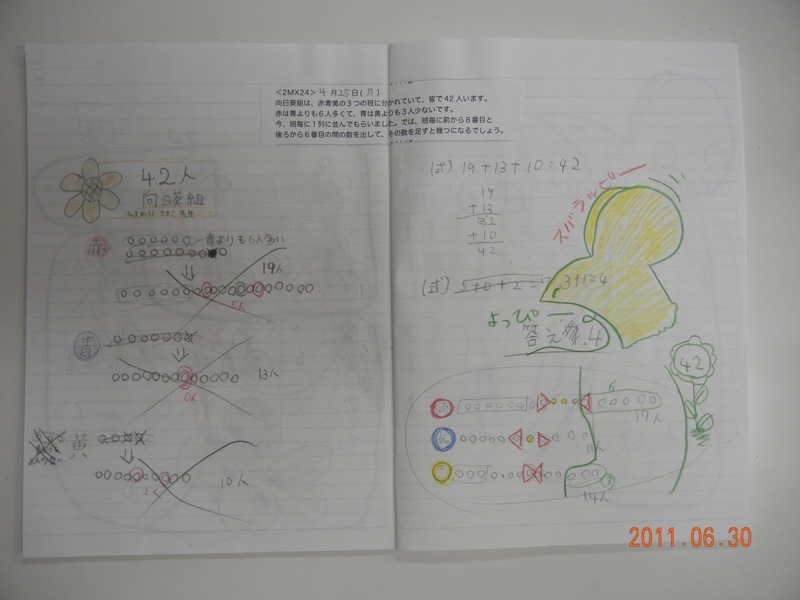 <2MX24> 4月25日(月)
向日葵組は、赤青黄の3つの班に分かれていて、皆で42人います。
赤は青よりも6人多くて、青は黄よりも3人少ないです。
今、班毎に1列に並んでもらいました。では、班毎に前から8番目と
後ろから6番目の間の数を出して、その数を足すと幾つになるでしょう。
42人
向日葵組
赤
青よりも6人多い
19人
5人
青
13人
0人
黄
10人
2人
(式) 19+13+10=42
19
+13
32
+10
42
スバラッピー
(式)
3+1=4
よっぴー
答え
4
42
6
17人
11人
3
14人
2011.06.30